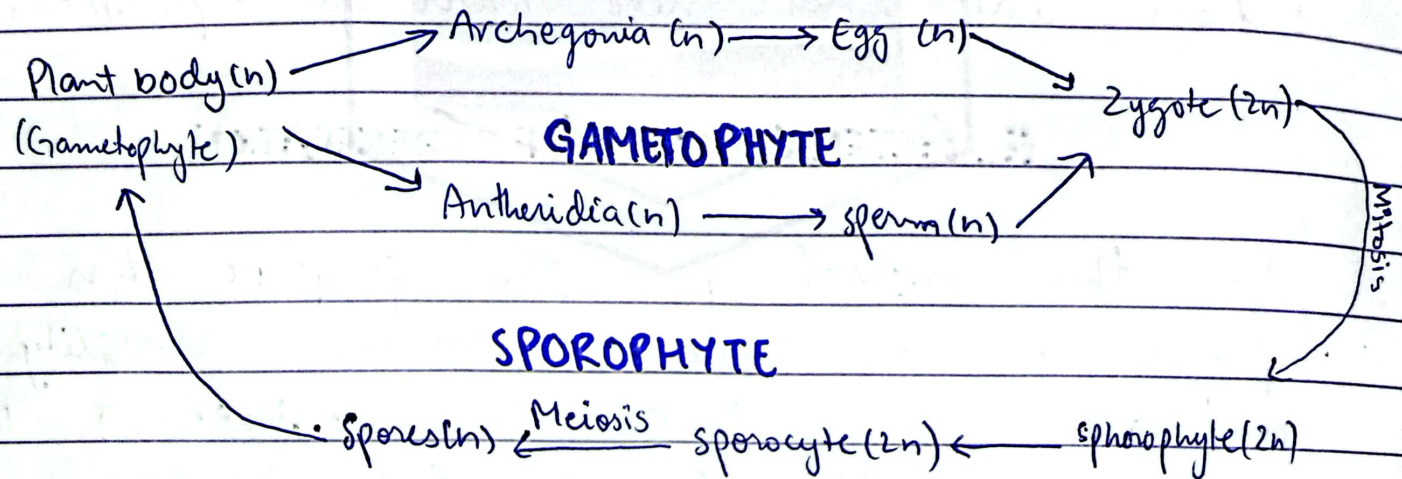 Archegonia (n) → Egg (n)
Plant body(n)
Zygote (2n)
(Gametophyte)
GAMETOPHYTE
Antheridia(n) → sperm(n)
Mitosis
SPOROPHYTE
Spores(n) ← Meiosis sporocyte(2n) ← sphorophyte(2n)